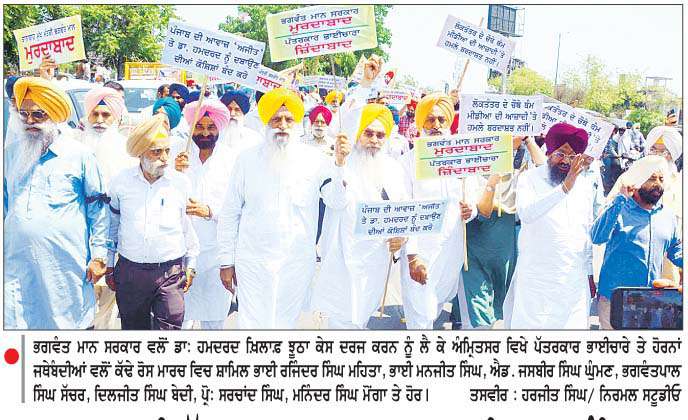 ਮੁਰਦਾਬਾਦ
ਪੰਜਾਬ ਦੀ ਆਵਾਜ਼ 'ਅਜੀਤ'
ਤੇ ਡਾ. ਹਮਦਰਦ ਨੂੰ ਦਬਾਉਣ
ਦੀਆਂ ਕੋਸ਼ਿਸ਼ਾਂ ਬੰਦ ਕਰੋ
ਭਗਵੰਤ ਮਾਨ ਸਰਕਾਰ
ਮੁਰਦਾਬਾਦ
ਪੱਤਰਕਾਰ ਭਾਈਚਾਰਾ
ਜ਼ਿੰਦਾਬਾਦ
ਲੋਕਤੰਤਰ ਦੇ ਚੌਥੇ ਥੰਮ
ਮੀਡੀਆ ਦੀ ਆਜ਼ਾਦੀ 'ਤੇ
ਹਮਲੇ ਬਰਦਾਸ਼ਤ ਨਹੀਂ
ਲੋਕਤੰਤਰ ਦੇ ਚੌਥੇ ਥੰਮ
ਮੀਡੀਆ ਦੀ ਆਜ਼ਾਦੀ 'ਤੇ
ਹਮਲੇ ਬਰਦਾਸ਼ਤ ਨਹੀਂ
ਭਗਵੰਤ ਮਾਨ ਸਰਕਾਰ
ਮੁਰਦਾਬਾਦ
ਪੱਤਰਕਾਰ ਭਾਈਚਾਰਾ
ਜ਼ਿੰਦਾਬਾਦ
ਪੰਜਾਬ ਦੀ ਆਵਾਜ਼ 'ਅਜੀਤ'
ਤੇ ਡਾ. ਹਮਦਰਦ ਨੂੰ ਦਬਾਉਣ
ਦੀਆਂ ਕੋਸ਼ਿਸ਼ਾਂ ਬੰਦ ਕਰੋ
ਭਗਵੰਤ ਮਾਨ ਸਰਕਾਰ ਵਲੋਂ ਡਾ: ਹਮਦਰਦ ਖ਼ਿਲਾਫ਼ ਝੂਠਾ ਕੇਸ ਦਰਜ ਕਰਨ ਨੂੰ ਲੈ ਕੇ ਅੰਮ੍ਰਿਤਸਰ ਵਿਖੇ ਪੱਤਰਕਾਰ ਭਾਈਚਾਰੇ ਤੇ ਹੋਰਨਾਂ
ਜਥੇਬੰਦੀਆਂ ਵਲੋਂ ਕੱਢੇ ਰੋਸ ਮਾਰਚ ਵਿਚ ਸ਼ਾਮਿਲ ਭਾਈ ਰਜਿੰਦਰ ਸਿੰਘ ਮਹਿਤਾ, ਭਾਈ ਮਨਜੀਤ ਸਿੰਘ, ਐਡ. ਜਸਬੀਰ ਸਿੰਘ ਘੁੰਮਣ, ਭਗਵੰਤਪਾਲ
ਸਿੰਘ ਸੱਚਰ, ਦਿਲਜੀਤ ਸਿੰਘ ਬੇਦੀ, ਪ੍ਰੋ: ਸਰਚਾਂਦ ਸਿੰਘ, ਮਨਿੰਦਰ ਸਿੰਘ ਮੌਂਗਾ ਤੇ ਹੋਰ। ਤਸਵੀਰ : ਹਰਜੀਤ ਸਿੰਘ/ ਨਿਰਮਲ ਸਟੂਡੀਓ